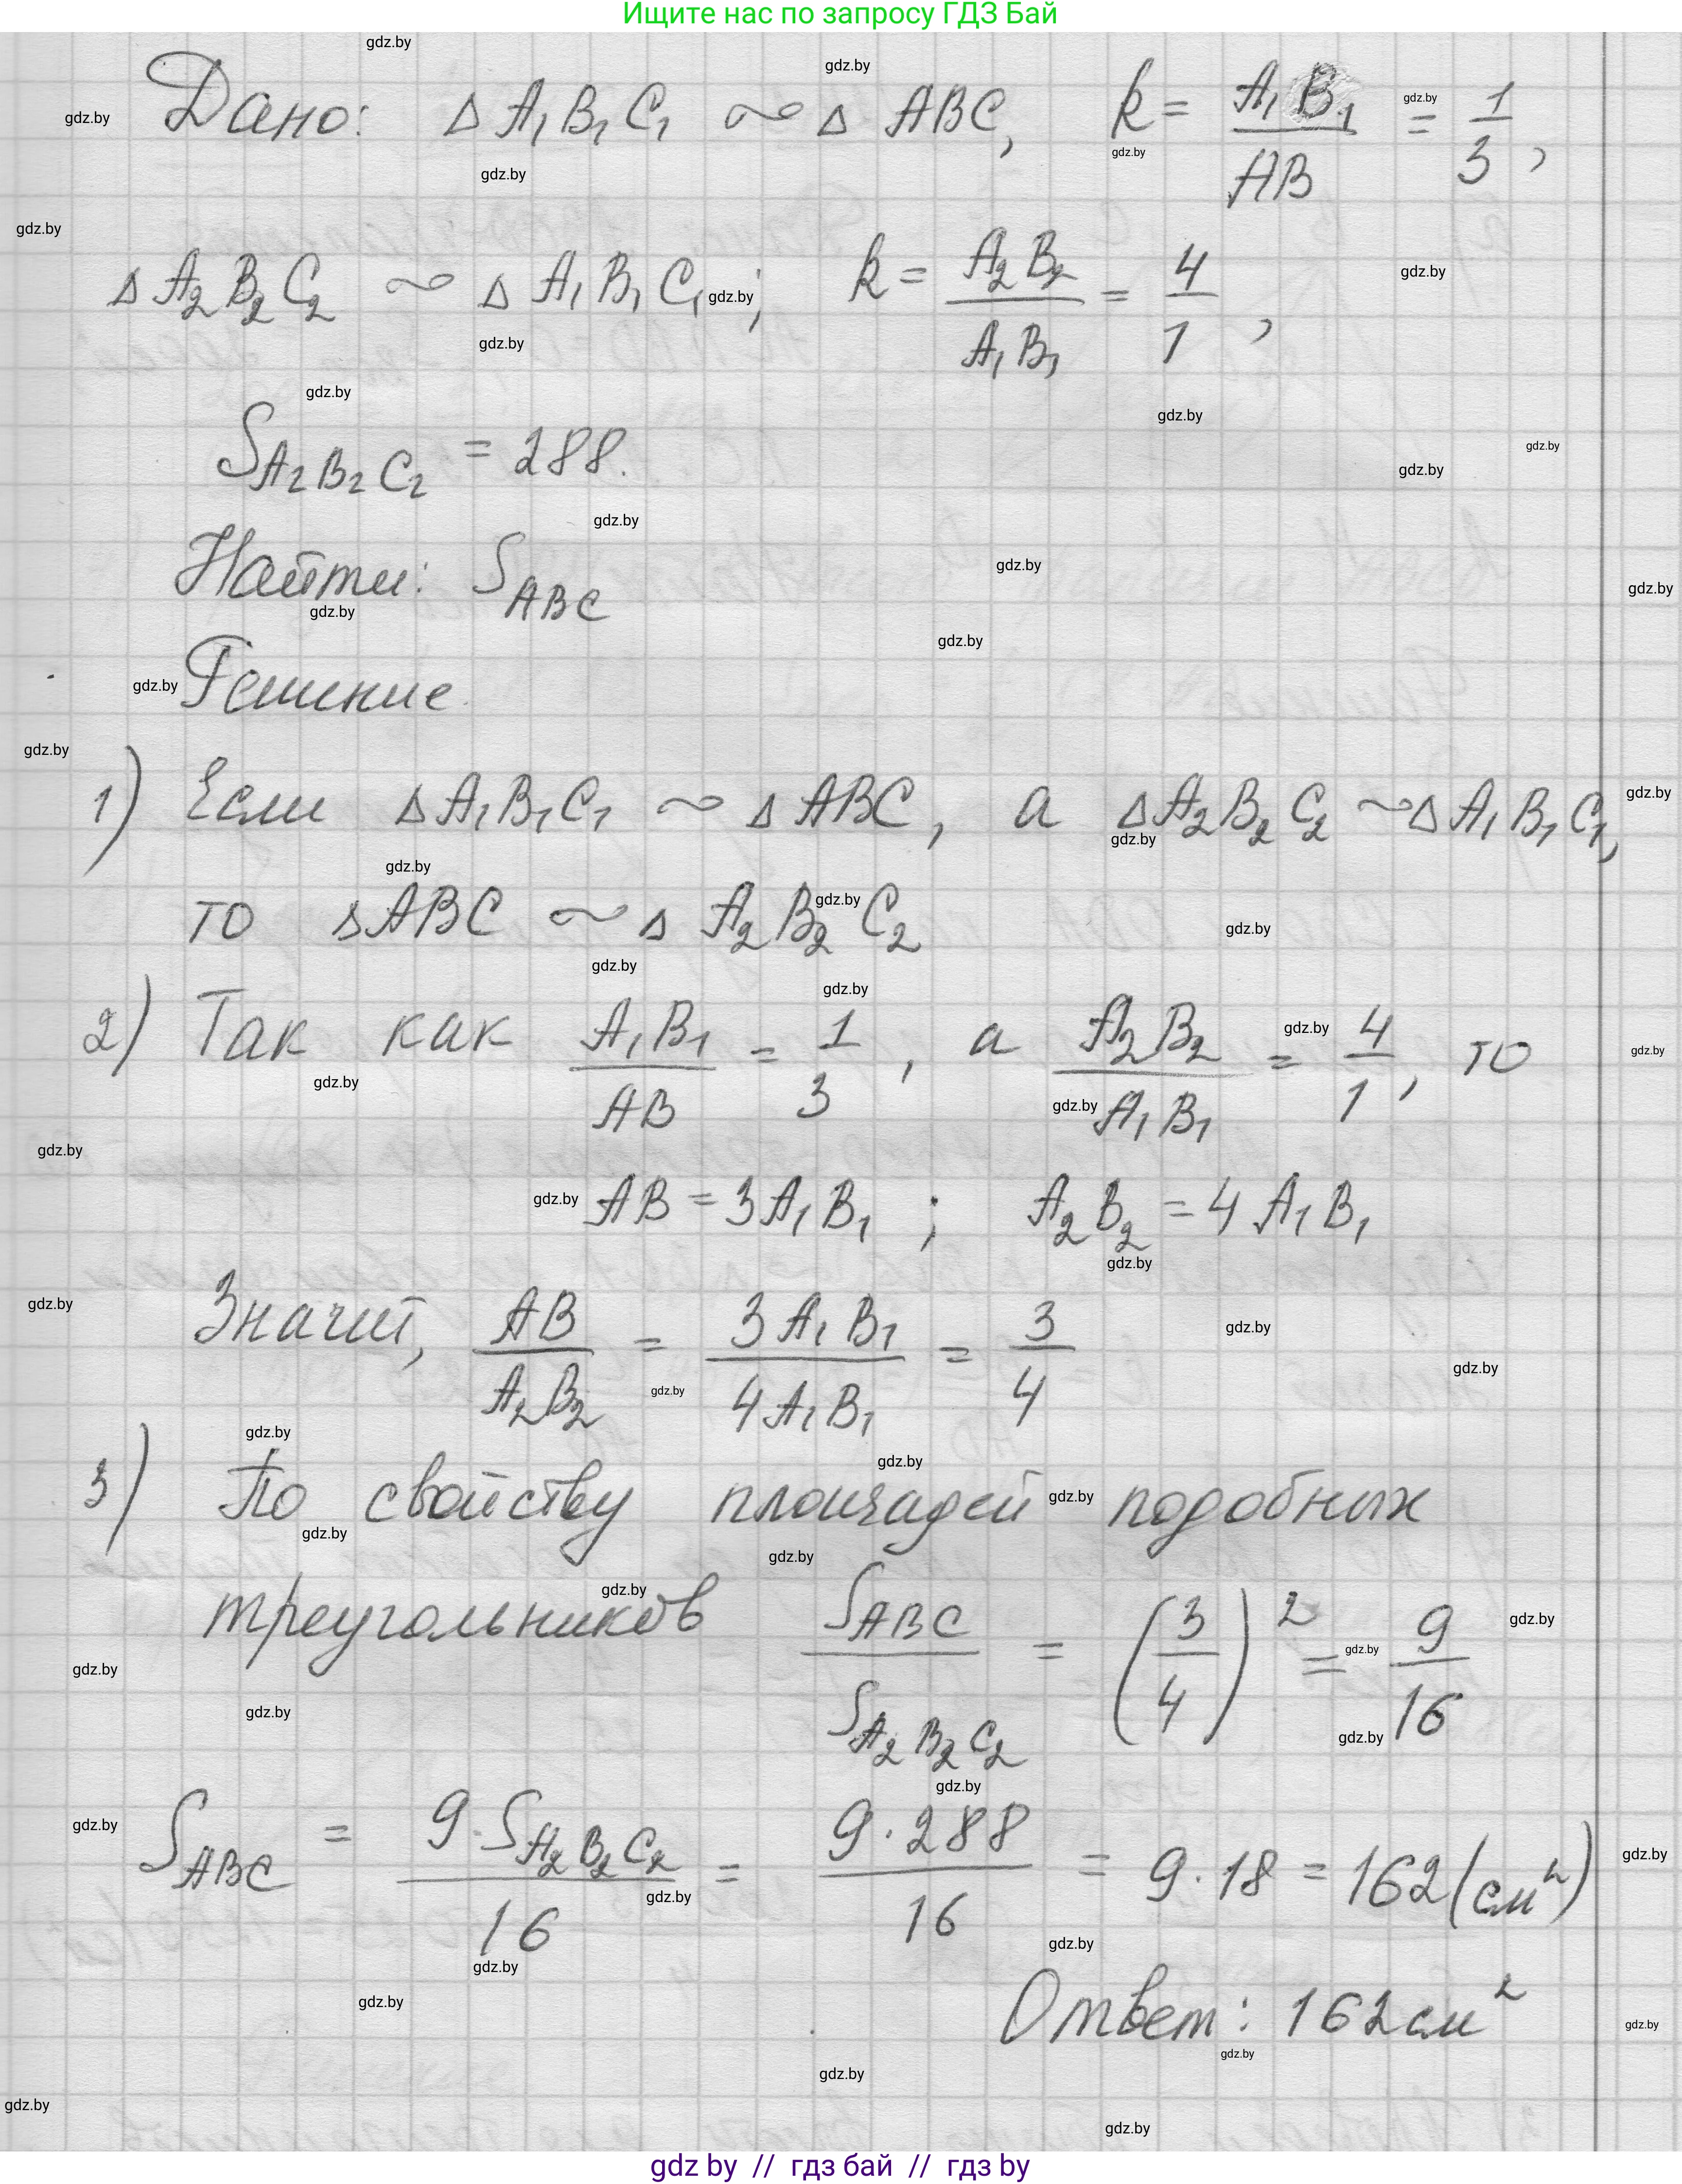 Ищите нас по запросу ГДЗ Бай
Дано: Δ A₁B₁C₁ ∾ Δ ABC, k = A₁B₁/AB = 1/3,
Δ A₂B₂C₂ ∾ Δ A₁B₁C₁; k = A₂B₂/A₁B₁ = 4/1,
S A₂B₂C₂ = 288.
Найти: S ABC
Решение.
1) Если Δ A₁B₁C₁ ∾ Δ ABC, а Δ A₂B₂C₂ ∾ Δ A₁B₁C₁,
то Δ ABC ∾ Δ A₂B₂C₂
2) Так как A₁B₁/AB = 1/3, а A₂B₂/A₁B₁ = 4/1, то
AB = 3A₁B₁; A₂B₂ = 4A₁B₁
Значит, AB/A₂B₂ = 3A₁B₁/4A₁B₁ = 3/4
3) По свойству площадей подобных
треугольников S ABC/S A₂B₂C₂ = (3/4)² = 9/16
S ABC = 9·S A₂B₂C₂/16 = 9·288/16 = 9·18 = 162 (см²)
Ответ: 162 см²
gdz by // гдз бай // gdz by